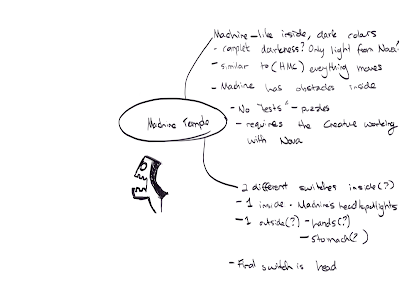 Machine-like inside, dark colours
- complet darkness? Only light from Nova?
- similar to (HMC) everything moves
- Machine has obstacles inside
- No "tests" - puzzles
- requires the Creature working
with Nova
Machine Temple
2 different switches inside(?)
- 1 inside - Machines head/spotlights
- 1 outside(?) - hands(?)
- Stomach(?)
- Final switch is head